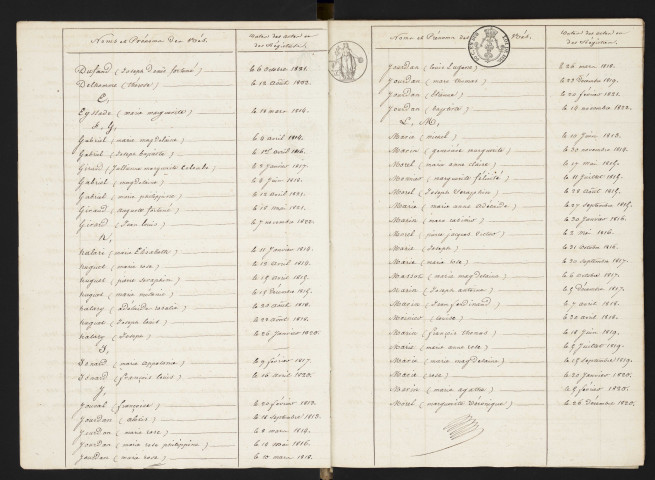 Noms et Prénoms des Nés.
Dates des actes ou des Registres
Dufaud (Joseph David fortuné) le 6 octobre 1821.
Delhomme (therese) le 12 août 1822.
E,
(marie marguerite) le 18 mars 1814.
F, G,
Gabriel (marie magdelaine) le 4 avril 1814.
Gabriel (Joseph baptiste) le 1er avril 1816.
Girard (Julienne marguerite colombe) le 2 janvier 1817.
Gabriel (magdelaine) le 8 juin 1818.
Gabriel (marie philippine) le 12 août 1821.
Giraud (auguste fortuné) le 16 mai 1821.
Girard (Jean louis) le 7 novembre 1822.
H,
halari (marie Elisabeth) le 11 Janvier 1814.
hugues (marie rose) le 13 avril 1814.
hugues (marie antoine) le 19 Décembre 1815.
halary (adélaïde rosalie) le 20 août 1818.
hugues (Joseph leord) le 22 août 1818.
halary (Joseph) le 26 Janvier 1820.
I,
Isnard (marie appolonie) le 9 février 1817.
Isnard (françois louis) le 16 avril 1820.
J,
Jauval (françoise) le 20 février 1813.
Jourdan (alexis) le 18 septembre 1813.
Jourdan (marie rose) le 8 mars 1814.
Jourdan (marie rose philippine) le 14 mai 1816.
Jourdan (marie rose) le 17 mars 1818.
Noms et Prénoms des Nés.
Dates des actes ou des Registres.
Jourdan (louis Eugene) le 26 mars 1818.
Jourdan (marc thomas) le 22 décembre 1819.
Jourdan (Etienne) le 20 février 1821.
Jourdan (baptiste) le 16 novembre 1822.
L, M,
Marie (michel) le 15 juin 1813.
Morel (marie anne claire) le 17 mai 1815.
Monier (marguerite félicité) le 11 juillet 1815.
Morel (Joseph Séraphin) le 28 août 1815.
Marie (marie anne Adélaïde) le 27 septembre 1815.
le 30 Janvier 1816.
Morel (pierre jacques victor) le 2 mai 1816.
Marie (Joseph) le 31 octobre 1816.
Marie (marie rose) le 20 septembre 1817.
Massot (marie magdelaine) le 6 octobre 1817.
Marin (Joseph antoine) le 5 décembre 1817.
Marin (Jean ferdinand) le 7 avril 1818.
Meissier (louise) le 20 avril 1818.
Marin (françois thomas) le 18 Juin 1819.
Marie (marie anne rose) le 9 Juillet 1819.
Marin (marie magdelaine) le 15 septembre 1819.
Marie (rose) le 20 Janvier 1820.
Marin (marie agathe) le 8 février 1820.
Morel (marguerite Véronique) le 26 décembre 1820.